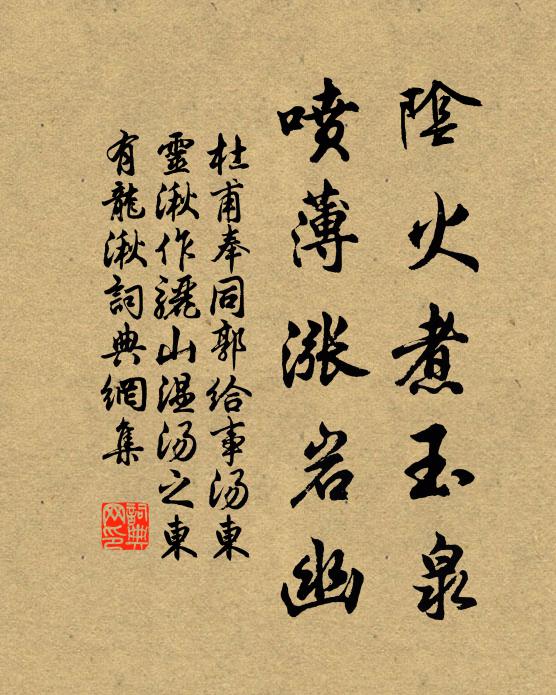 陰火煮玉泉
喷薄漲岩幽
杜甫奉同郭給事湯東
靈湫作驪山溫湯之東
有龍湫詞典網集
詞典
网印